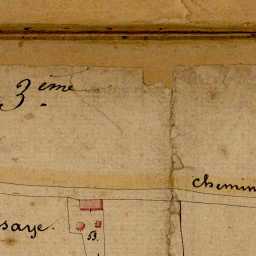 3.ème
chemin
saye.
53.